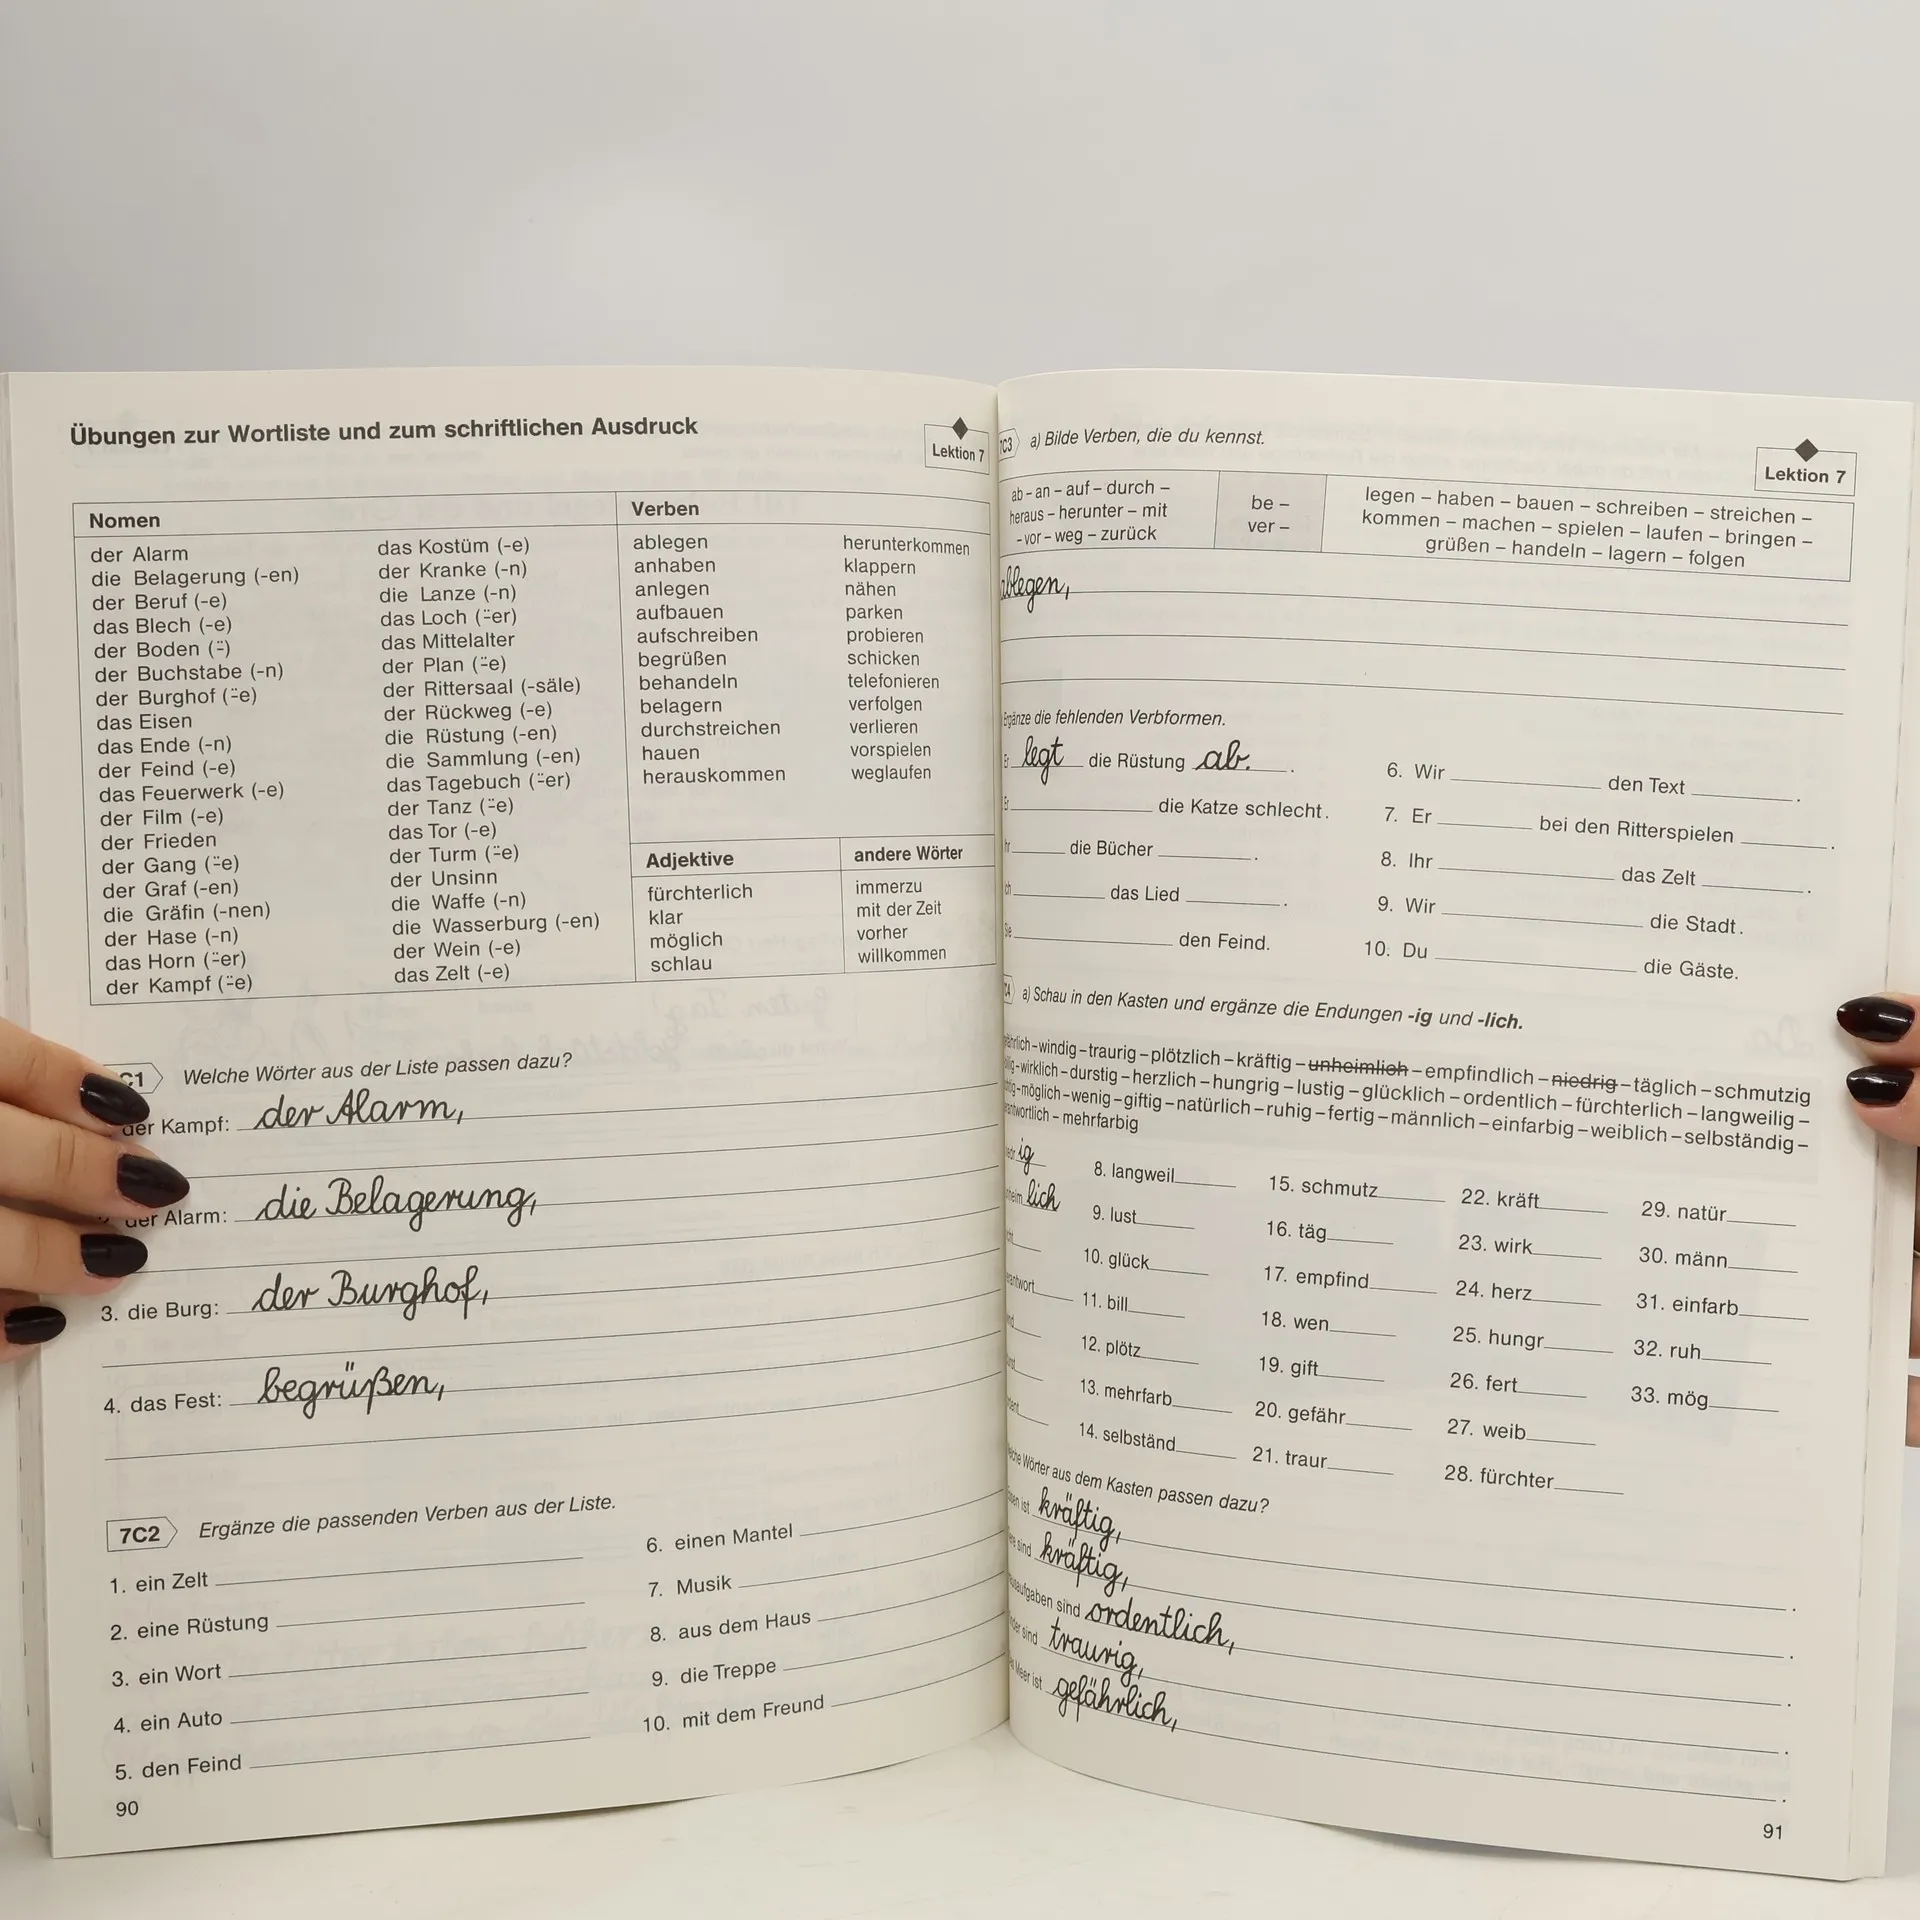 Übungen zur Wortliste und zum schriftlichen Ausdruck
Lektion 7
Nomen
der Alarm
die Belagerung (-en)
der Beruf (-e)
das Blech (-e)
der Boden (¨-)
der Buchstabe (-n)
der Burghof (¨-e)
das Eisen
das Ende (-n)
der Feind (-e)
das Feuerwerk (-e)
der Film (-e)
der Frieden
der Gang (¨-e)
der Graf (-en)
die Gräfin (-nen)
der Hase (-n)
das Horn (¨-er)
der Kampf (¨-e)
das Kostüm (-e)
der Kranke (-n)
die Lanze (-n)
das Loch (¨-er)
das Mittelalter
der Plan (¨-e)
der Rittersaal (-säle)
der Rückweg (-e)
die Rüstung (-en)
die Sammlung (-en)
das Tagebuch (¨-er)
der Tanz (¨-e)
das Tor (-e)
der Turm (¨-e)
der Unsinn
die Waffe (-n)
die Wasserburg (-en)
der Wein (-e)
das Zelt (-e)
Verben
ablegen
anhaben
anlegen
aufbauen
aufschreiben
begrüßen
behandeln
belagern
durchstreichen
hauen
herauskommen
herunterkommen
klappern
nähen
parken
probieren
schicken
telefonieren
verfolgen
verlieren
vorspielen
weglaufen
Adjektive
fürchterlich
klar
möglich
schlau
andere Wörter
immerzu
mit der Zeit
vorher
willkommen
C1 Welche Wörter aus der Liste passen dazu?
der Kampf: der Alarm,
der Alarm: die Belagerung,
3. die Burg: der Burghof,
4. das Fest: begrüßen,
7C2 Ergänze die passenden Verben aus der Liste.
1. ein Zelt
2. eine Rüstung
3. ein Wort
4. ein Auto
5. den Feind
6. einen Mantel
7. Musik
8. aus dem Haus
9. die Treppe
10. mit dem Freund
90
7C3 a) Bilde Verben, die du kennst.
Lektion 7
ab – an – auf – durch –
heraus – herunter – mit
– vor – weg – zurück
be –
ver –
legen – haben – bauen – schreiben – streichen –
kommen – machen – spielen – laufen – bringen –
grüßen – handeln – lagern – folgen
ablegen,
Ergänze die fehlenden Verbformen.
Er legt die Rüstung ab.
Er die Katze schlecht.
die Bücher .
das Lied .
Sie den Feind.
6. Wir den Text .
7. Er bei den Ritterspielen .
8. Ihr das Zelt .
9. Wir die Stadt.
10. Du die Gäste.
a) Schau in den Kasten und ergänze die Endungen -ig und -lich.
–windig–traurig–plötzlich–kräftig–unheimlich–empfindlich–niedrig–täglich–schmutzig
–wirklich–durstig–herzlich–hungrig–lustig–glücklich–ordentlich–fürchterlich–langweilig–
–möglich–wenig–giftig–natürlich–ruhig–fertig–männlich–einfarbig–weiblich–selbständig–
–mehrfarbig
ig
lich
8. langweil
9. lust
10. glück
11. bill
12. plötz
13. mehrfarb
14. selbständ
15. schmutz
16. täg
17. empfind
18. wen
19. gift
20. gefähr
21. traur
22. kräft
23. wirk
24. herz
25. hungr
26. fert
27. weib
28. fürchter
29. natür
30. männ
31. einfarb
32. ruh
33. mög
Wörter aus dem Kasten passen dazu?
ist kräftig,
sind kräftig,
sind ordentlich,
sind traurig,
Meer ist gefährlich,
91